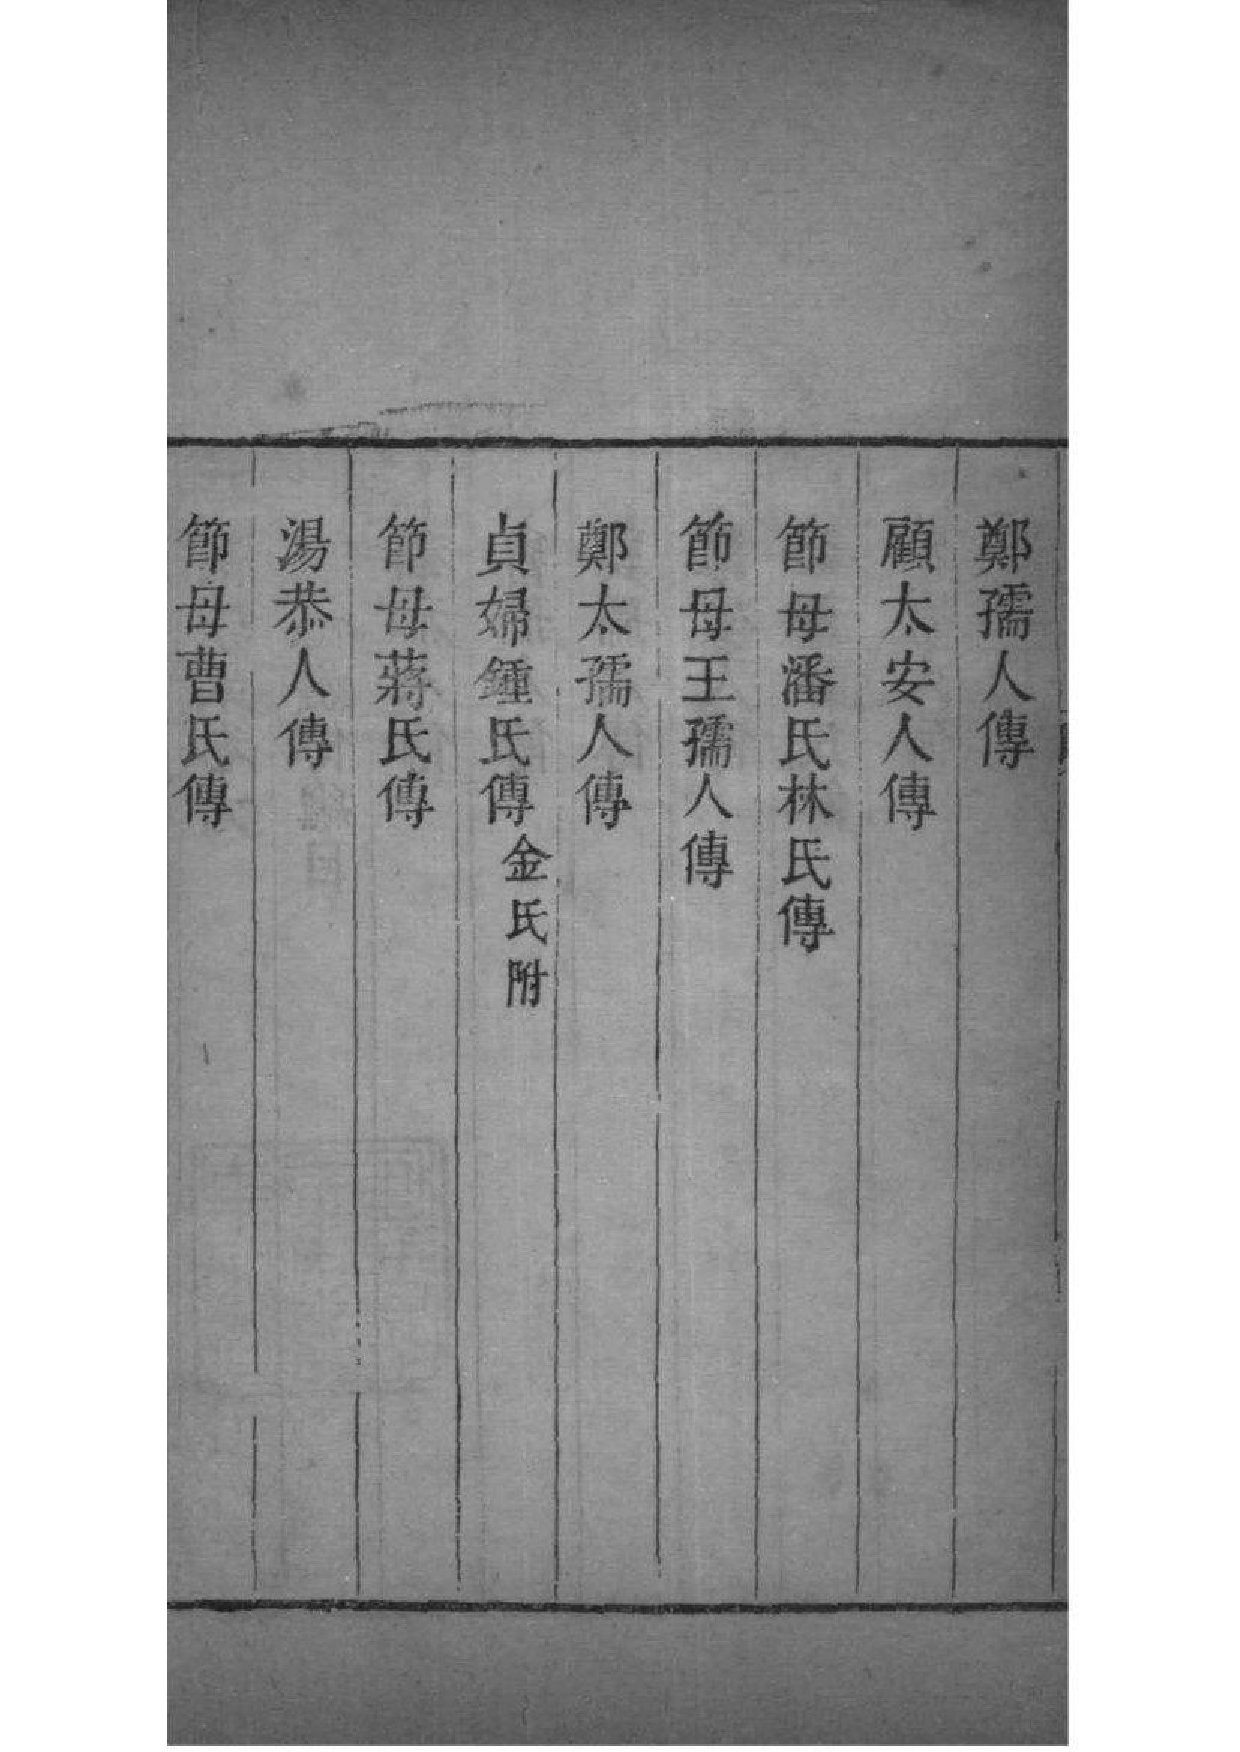 鄭孺人傳
顧太安人傳
節母潘氏林氏傳
節母王孺人傳
鄭太孺人傳
貞婦鍾氏傳金氏附
節母蔣氏傳
湯恭人傳
節母曹氏傳